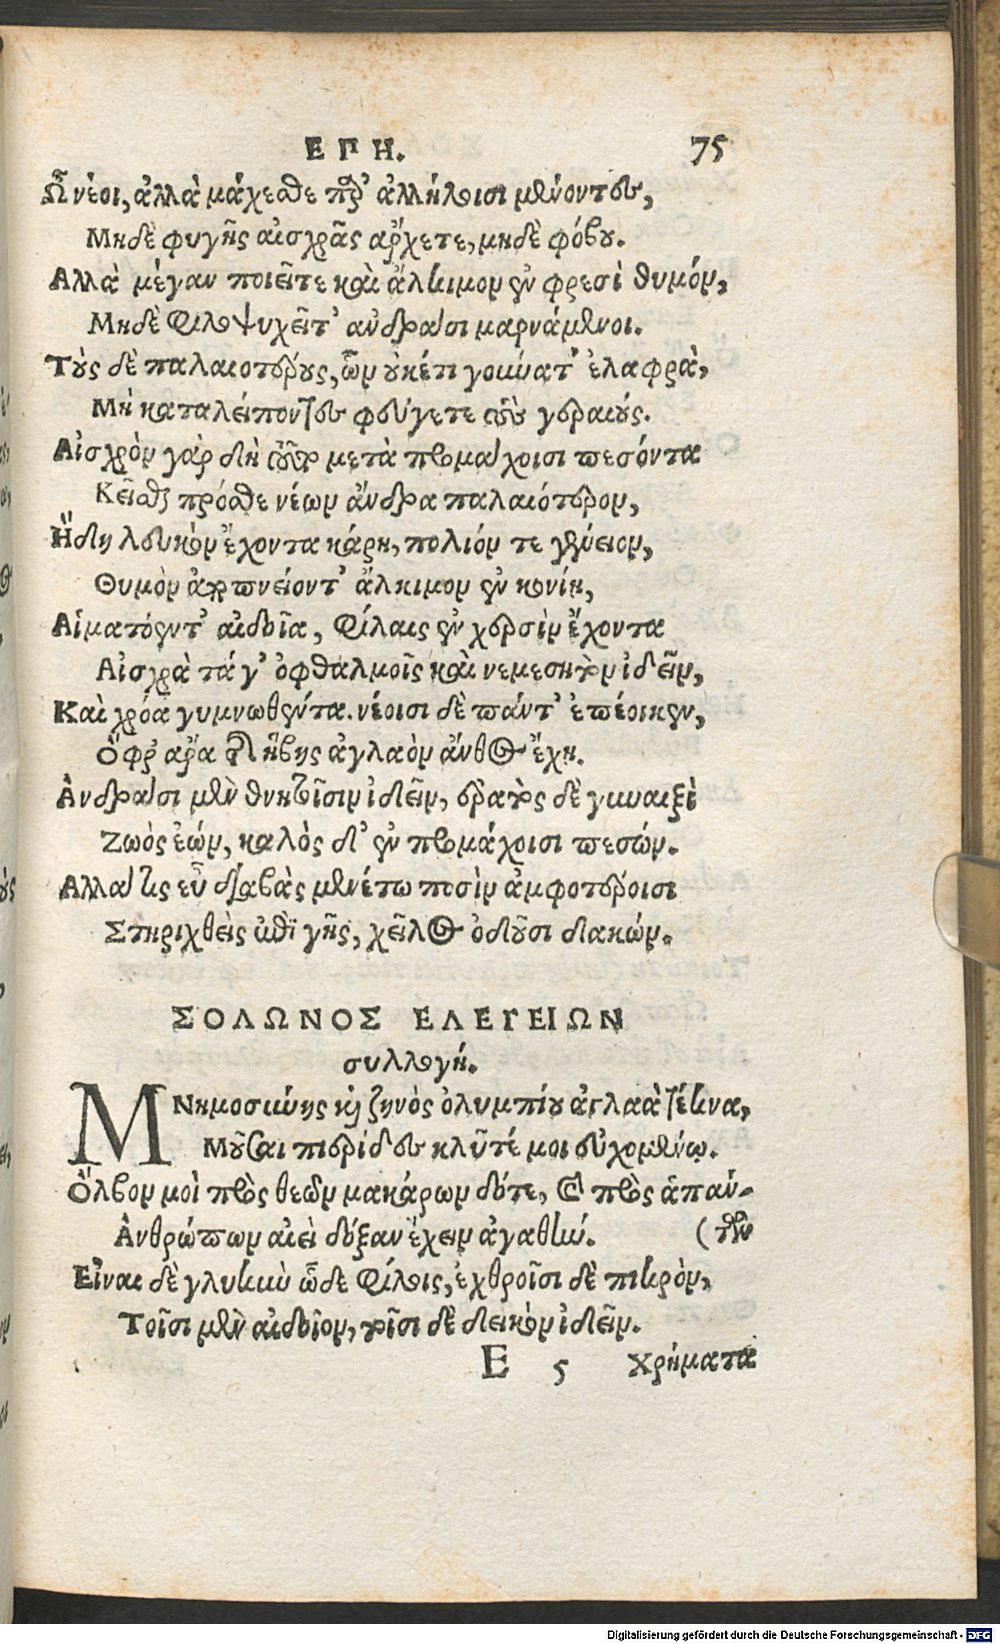 ΕΠΗ. 75
Ὦ νέοι, ἀλλὰ μάχεσθε παρ' ἀλλήλοισι μένοντες,
Μηδὲ φυγῆς αἰσχρᾶς ἄρχετε, μηδὲ φόβου.
Ἀλλὰ μέγαν ποιεῖτε καὶ ἄλκιμον ἐν φρεσὶ θυμόν,
Μηδὲ φιλοψυχεῖτ' ἀνδράσι μαρνάμενοι.
Τοὺς δὲ παλαιοτέρους, ὧν οὐκέτι γούνατ' ἐλαφρὰ,
Μὴ καταλείποντες φεύγετε τοὺς γεραιούς.
Αἰσχρὸν γὰρ δὴ τοῦτο μετὰ προμάχοισι πεσόντα
Κεῖσθαι πρόσθε νέων ἄνδρα παλαιότερον,
Ἤδη λευκὸν ἔχοντα κάρη, πολιόν τε γένειον,
Θυμὸν ἀποπνείοντ' ἄλκιμον ἐν κονίη,
Αἱματόεντ' αἰδοῖα, φίλαις ἐν χερσὶν ἔχοντα
Αἰσχρὰ τά γ' ὀφθαλμοῖς καὶ νεμεσητὸν ἰδεῖν,
Καὶ χρόα γυμνωθέντα. νέοισι δὲ πάντ' ἐπέοικεν,
Ὄφρ ἄρα τῆ ἥβης ἀγλαὸν ἄνθος ἔχη.
Ἀνδράσι μὲν θνητοῖσιν ἰδεῖν, ἐρατὸς δὲ γυναιξὶ
Ζωὸς ἐών, καλὸς δ' ἐν προμάχοισι πεσών.
Ἀλλά τις εὖ διαβὰς μενέτω ποσὶν ἀμφοτέροισι
Στηριχθεὶς ἐπὶ γῆς, χεῖλος ὀδοῦσι δακών.
ΣΟΛΩΝΟΣ ΕΛΕΓΕΙΩΝ
συλλογή.
Μνημοσύνης καὶ ζηνὸς ὀλυμπίου ἀγλαὰ τέκνα,
Μοῦσαι πιερίδες κλῦτέ μοι εὐχομένῳ.
Ὄλβον μοὶ πρὸς θεῶν μακάρων δότε, καὶ πρὸς ἁπάν-
Ἀνθρώπων αἰεὶ δόξαν ἔχειν ἀγαθήν. (των
Εἶναι δὲ γλυκὺ ὧδε φίλοις, ἐχθροῖσι δὲ πικρὸν,
Τοῖσι μὲν αἰδοῖον, τοῖσι δὲ δεινὸν ἰδεῖν.
E 5 Χρήματα
Digitalisierung gefördert durch die Deutsche Forschungsgemeinschaft - DFG